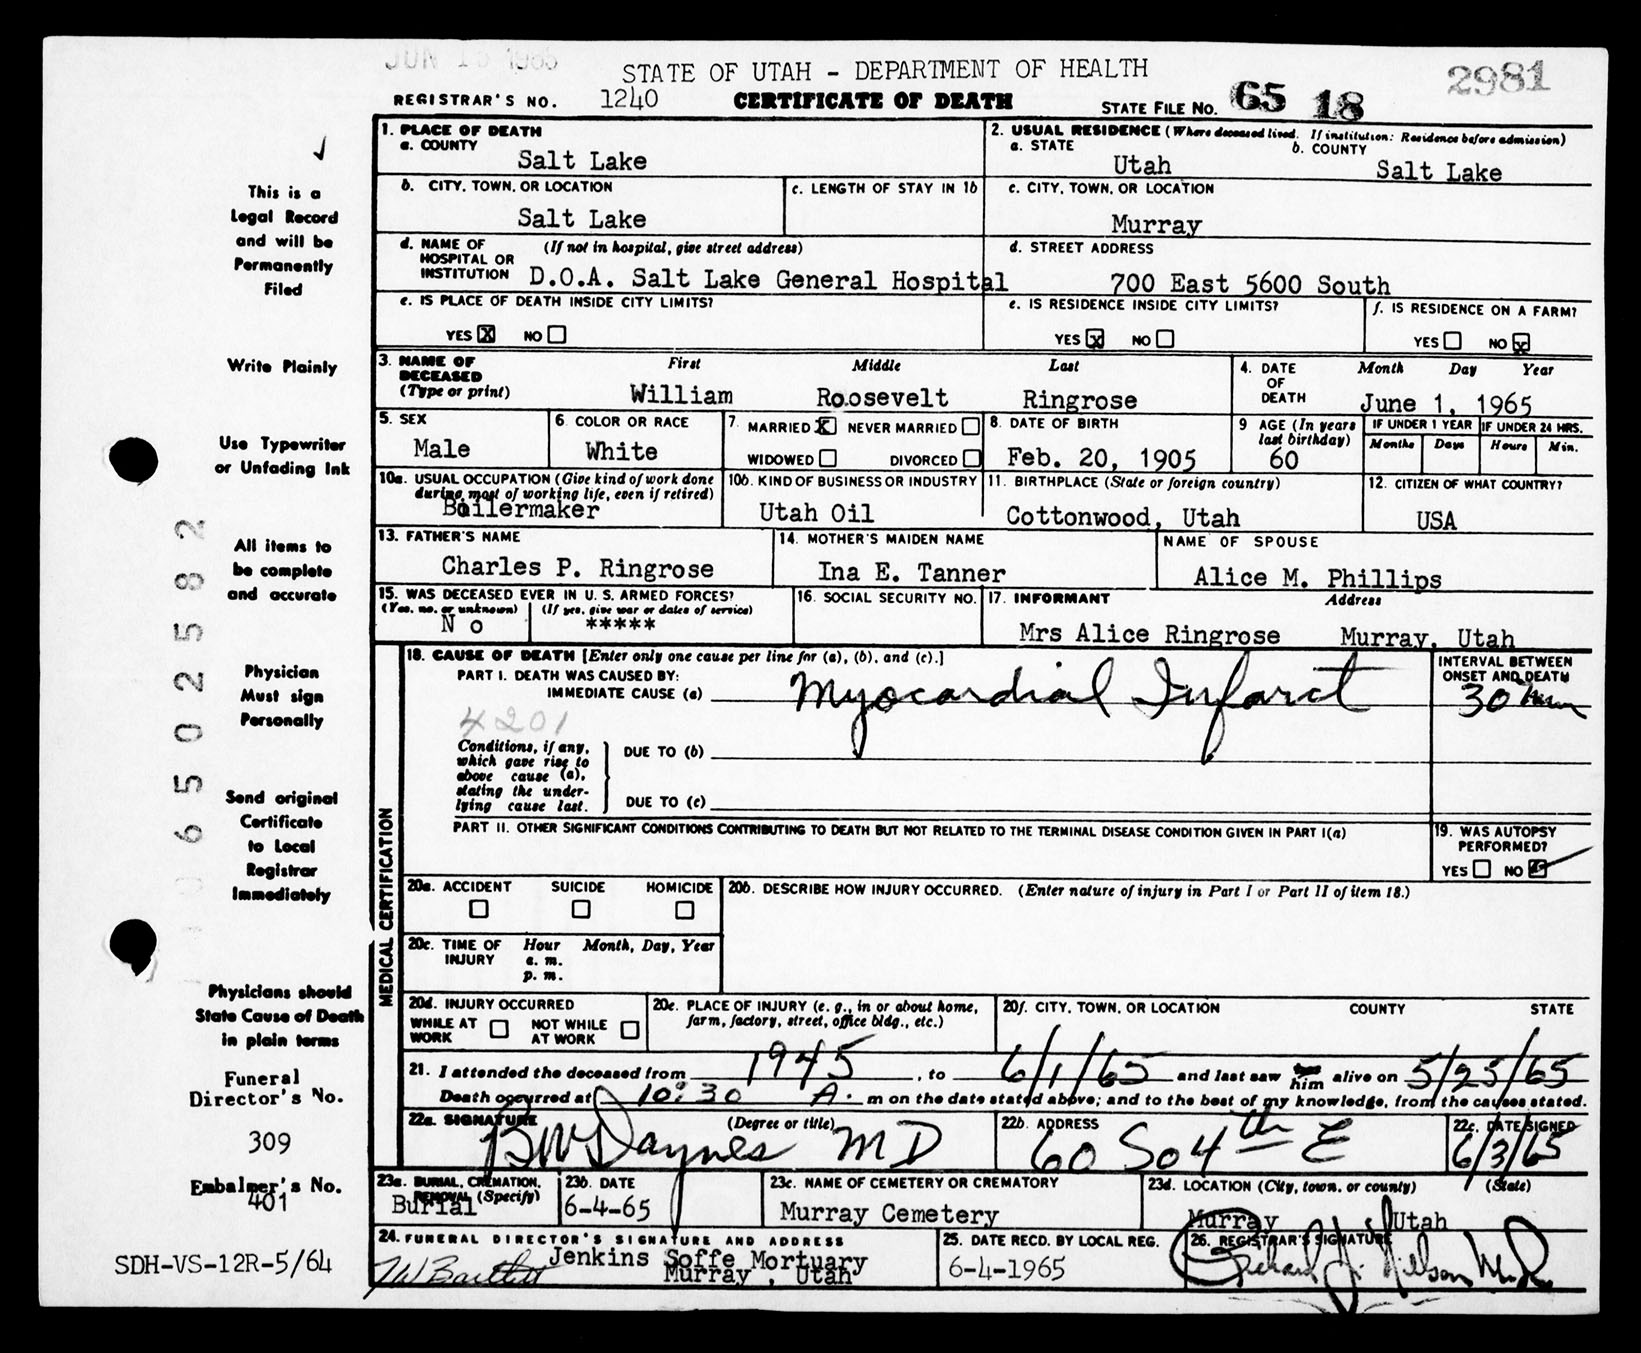 JUN 1965
STATE OF UTAH - DEPARTMENT OF HEALTH
2981
REGISTRAR'S NO. 1240 CERTIFICATE OF DEATH STATE FILE NO. 65 18
1. PLACE OF DEATH
a. COUNTY
Salt Lake
2. USUAL RESIDENCE (Where deceased lived. If institution: Residence before admission)
a. STATE b. COUNTY
Utah Salt Lake
b. CITY, TOWN, OR LOCATION
Salt Lake
c. LENGTH OF STAY IN 1b
c. CITY, TOWN, OR LOCATION
Murray
d. NAME OF HOSPITAL OR INSTITUTION (If not in hospital, give street address)
D.O.A. Salt Lake General Hospital
d. STREET ADDRESS
700 East 5600 South
e. IS PLACE OF DEATH INSIDE CITY LIMITS?
YES X NO
e. IS RESIDENCE INSIDE CITY LIMITS?
YES X NO
f. IS RESIDENCE ON A FARM?
YES NO X
3. NAME OF DECEASED (Type or print)
First Middle Last
William Roosevelt Ringrose
4. DATE OF DEATH
Month Day Year
June 1, 1965
5. SEX
Male
6. COLOR OR RACE
White
7. MARRIED X NEVER MARRIED
WIDOWED DIVORCED
8. DATE OF BIRTH
Feb. 20, 1905
9 AGE (In years last birthday)
60
IF UNDER 1 YEAR IF UNDER 24 HRS.
Months Days Hours Min.
10a. USUAL OCCUPATION (Give kind of work done
during most of working life, even if retired)
Boilermaker
10b. KIND OF BUSINESS OR INDUSTRY
Utah Oil
11. BIRTHPLACE (State or foreign country)
Cottonwood, Utah
12. CITIZEN OF WHAT COUNTRY?
USA
13. FATHER'S NAME
Charles P. Ringrose
14. MOTHER'S MAIDEN NAME
Ina E. Tanner
NAME OF SPOUSE
Alice M. Phillips
15. WAS DECEASED EVER IN U. S. ARMED FORCES?
(Yes, no, or unknown) (If yes, give war or dates of service)
No *****
16. SOCIAL SECURITY NO.
17. INFORMANT Address
Mrs Alice Ringrose Murray, Utah
18. CAUSE OF DEATH [Enter only one cause per line for (a), (b), and (c).]
PART I. DEATH WAS CAUSED BY:
IMMEDIATE CAUSE (a) Myocardial Infarct
INTERVAL BETWEEN
ONSET AND DEATH
30
4201
Conditions, if any,
which gave rise to
above cause (a),
stating the under-
lying cause last.
DUE TO (b)
DUE TO (c)
PART II. OTHER SIGNIFICANT CONDITIONS CONTRIBUTING TO DEATH BUT NOT RELATED TO THE TERMINAL DISEASE CONDITION GIVEN IN PART I(a)
19. WAS AUTOPSY
PERFORMED?
YES NO
MEDICAL CERTIFICATION
20a. ACCIDENT SUICIDE HOMICIDE
20b. DESCRIBE HOW INJURY OCCURRED. (Enter nature of injury in Part I or Part II of item 18.)
20c. TIME OF INJURY
Hour Month, Day, Year
a. m.
p. m.
20d. INJURY OCCURRED
WHILE AT WORK NOT WHILE AT WORK
20e. PLACE OF INJURY (e. g., in or about home,
farm, factory, street, office bldg., etc.)
20f. CITY, TOWN, OR LOCATION COUNTY STATE
21. I attended the deceased from 1945, to 6/1/65 and last saw him alive on 5/25/65
Death occurred at 10:30 A. m on the date stated above; and to the best of my knowledge, from the causes stated.
22a. SIGNATURE (Degree or title)
BW Daynes MD
22b. ADDRESS
60 So 4th E
22c. DATE SIGNED
6/3/65
23a. BURIAL, CREMATION,
REMOVAL (Specify)
Burial
23b. DATE
6-4-65
23c. NAME OF CEMETERY OR CREMATORY
Murray Cemetery
23d. LOCATION (City, town, or county) (State)
Murray Utah
24. FUNERAL DIRECTOR'S SIGNATURE AND ADDRESS
Jenkins Soffe Mortuary
Murray, Utah
25. DATE RECD. BY LOCAL REG.
6-4-1965
26. REGISTRAR'S SIGNATURE
This is a
Legal Record
and will be
Permanently
Filed
Write Plainly
Use Typewriter
or Unfading Ink
All items to
be complete
and accurate
Physician
Must sign
Personally
Send original
Certificate
to Local
Registrar
Immediately
Physicians should
State Cause of Death
in plain terms
Funeral
Director's No.
309
Embalmer's No.
401
SDH-VS-12R-5/64
0 6 5 0 2 5 8 2